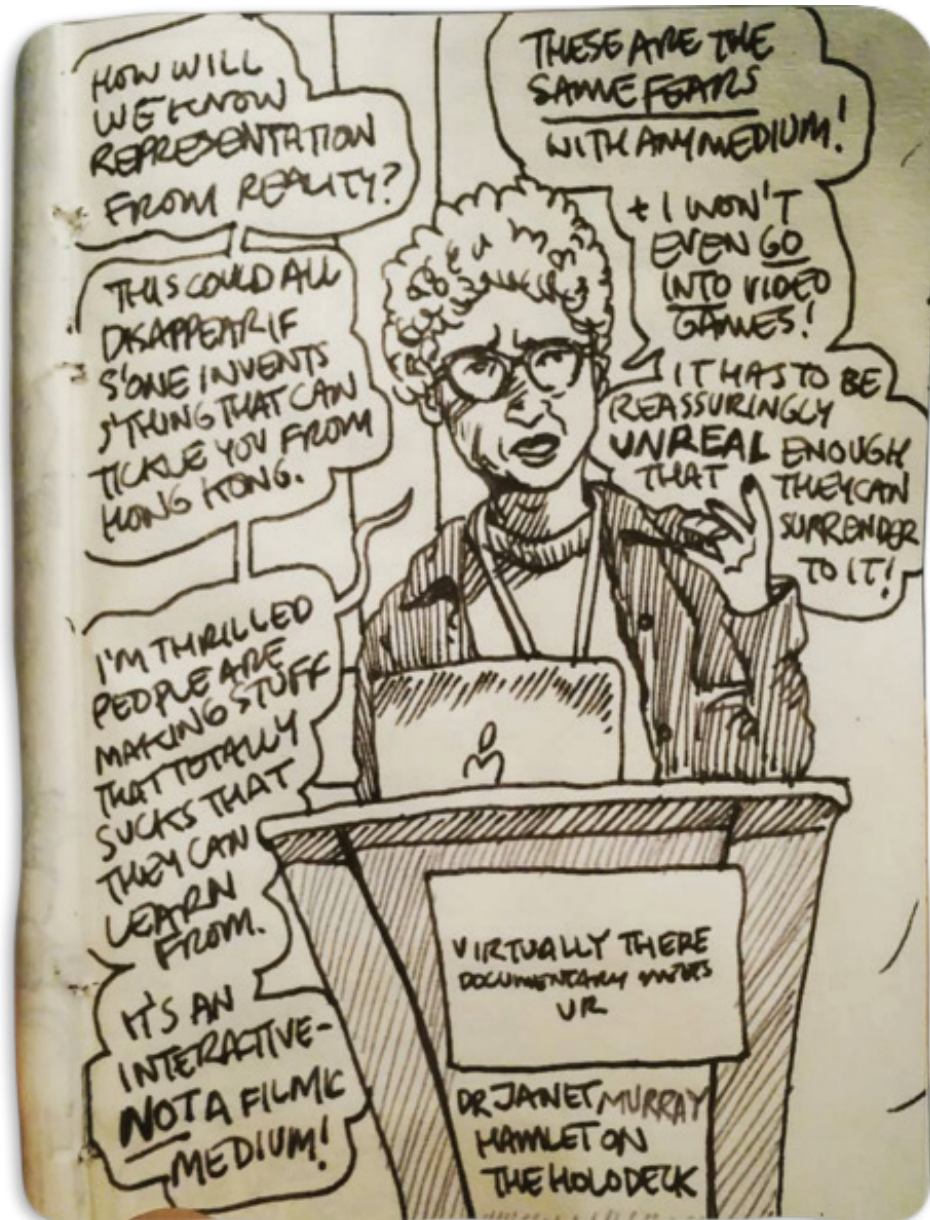 HOW WILL
WE KNOW
REPRESENTATION
FROM REALITY?
THIS COULD ALL
DISAPPEAR IF
S'ONE INVENTS
S'THING THAT CAN
TICKLE YOU FROM
HONG KONG.
I'M THRILLED
PEOPLE ARE
MAKING STUFF
THAT TOTALLY
SUCKS THAT
THEY CAN
LEARN
FROM.
IT'S AN
INTERACTIVE-
NOT A FILMIC
MEDIUM!
THESE ARE THE
SAME FEARS
WITH ANY MEDIUM!
+ I WON'T
EVEN GO
INTO VIDEO
GAMES!
IT HAS TO BE
REASSURINGLY
UNREAL ENOUGH
THAT THEY CAN
SURRENDER
TO IT!
VIRTUALLY THERE
DOCUMENTARY MEETS
VR
DR JANET MURRAY
HAMLET ON
THE HOLODECK